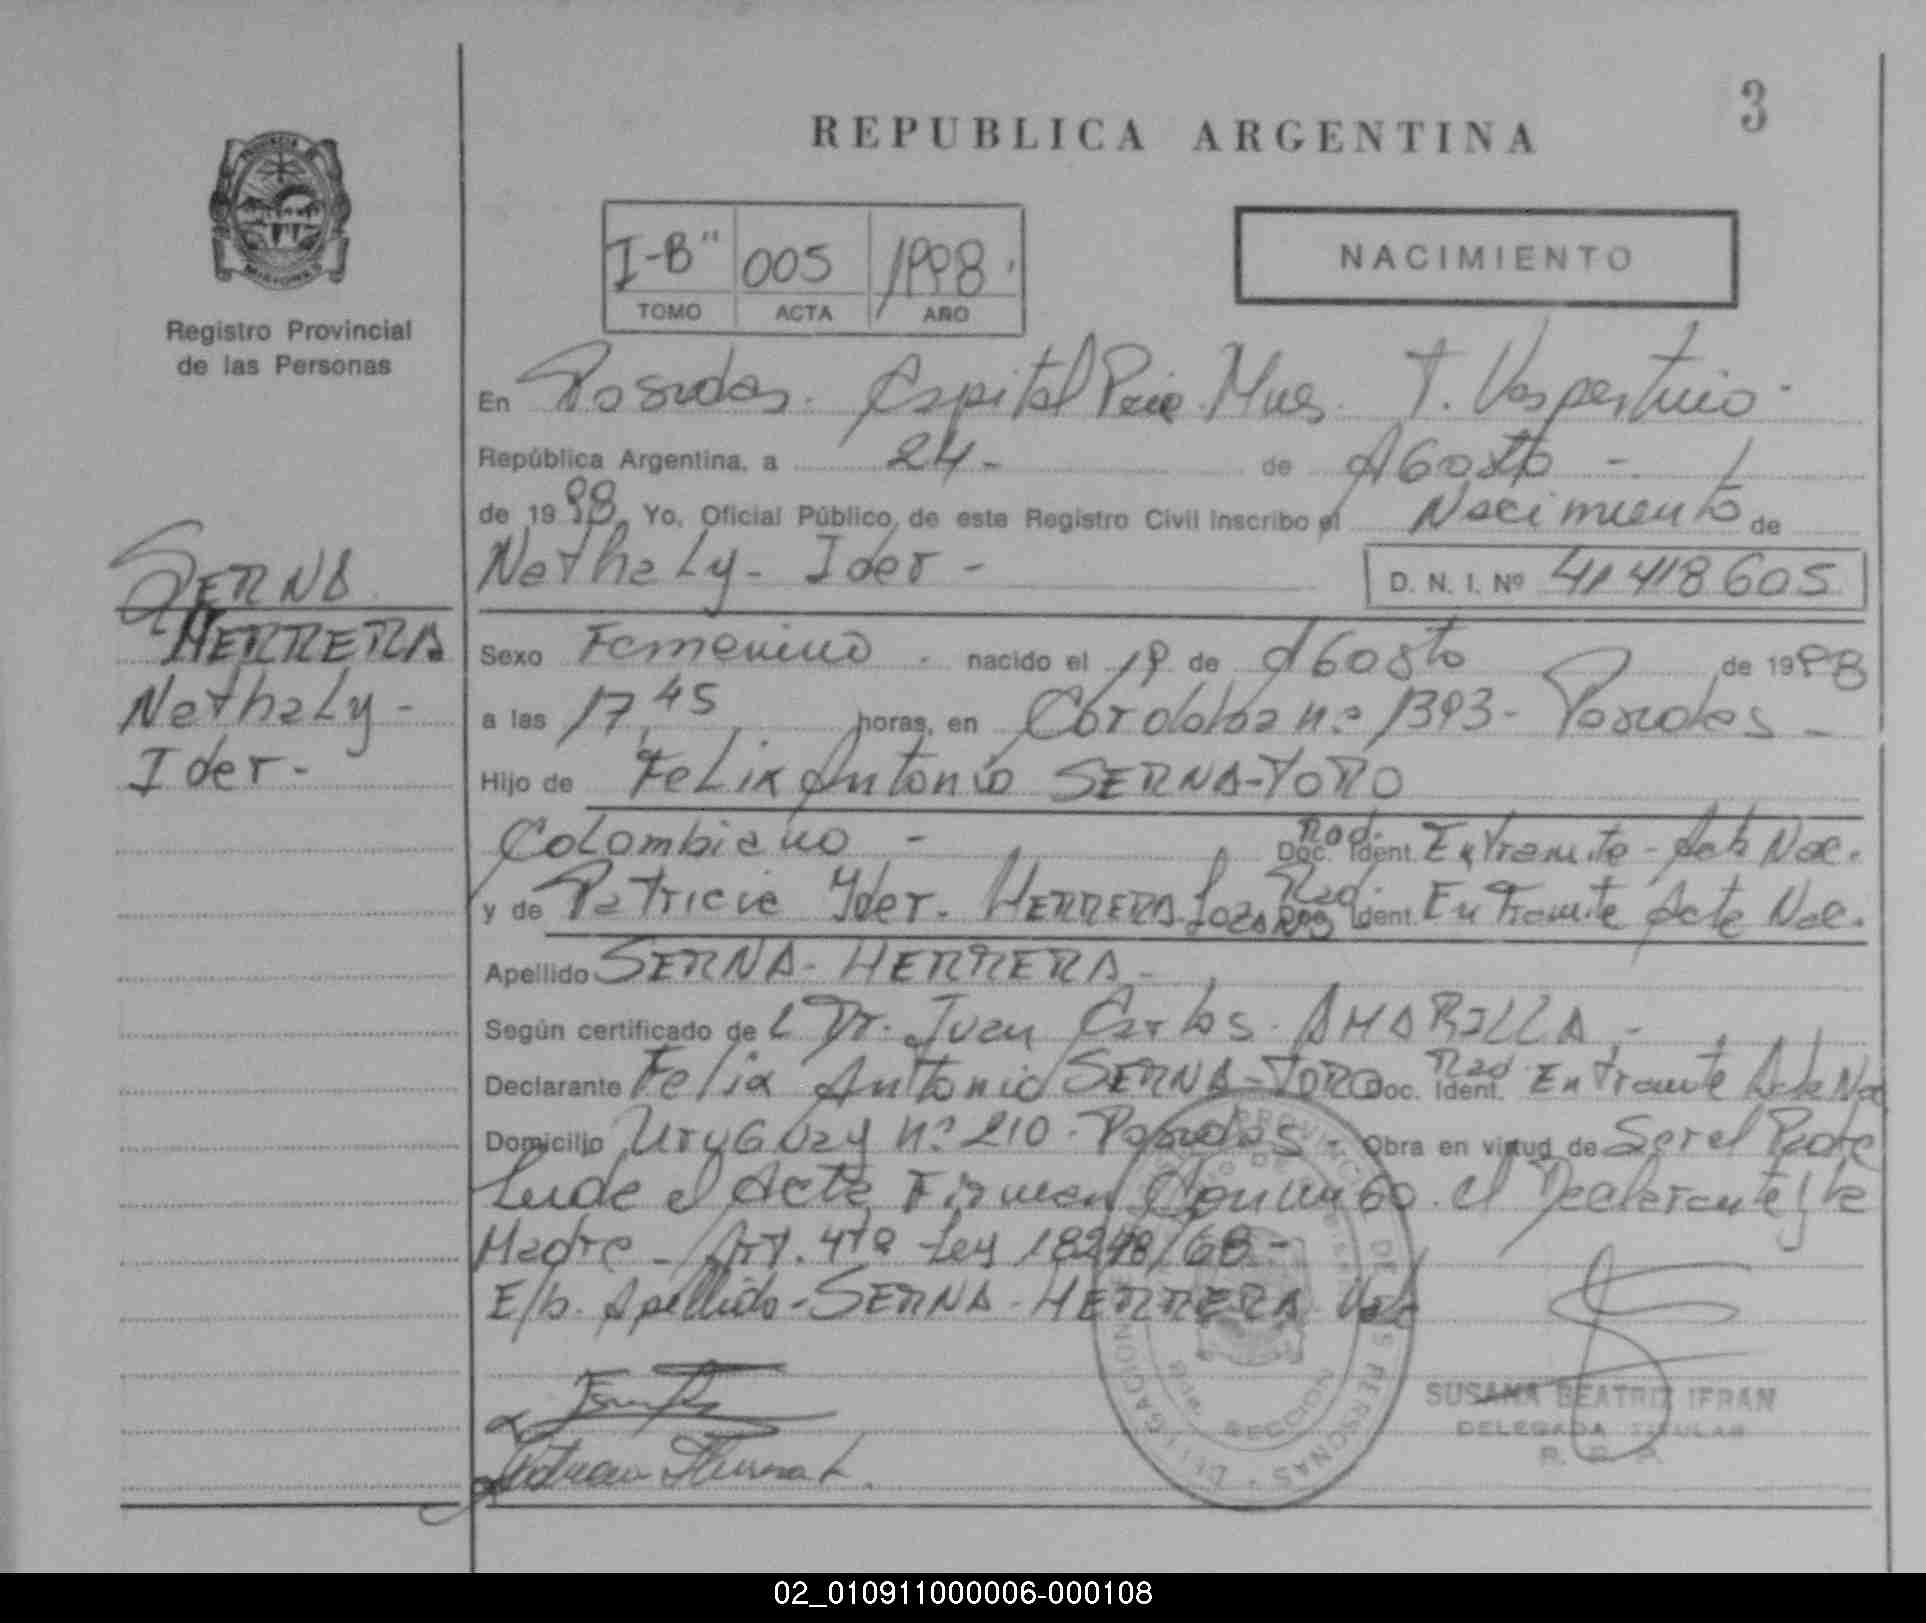 REPUBLICA ARGENTINA
3
Registro Provincial
de las Personas
I-B" 005 1998
TOMO ACTA AÑO
NACIMIENTO
En Posadas. Capital Pcia. Mnes. T. Vespertino.
República Argentina, a 24 - de Agosto -
de 1998, Yo, Oficial Público, de este Registro Civil inscribo el Nacimiento de
Nathaly - Ider -
D. N. I. Nº 41418605
SERNA
HERRERA
Nathaly -
Ider -
Sexo Femenino - nacido el 19 de Agosto de 1998
a las 17,45 horas, en Cordoba nº 1393 - Posadas -
Hijo de Felix Antonio SERNA-TORO
Colombiano - Rad. Doc. Ident. En tramite - Acta Nac.
y de Patricia Yder. HERRERA LOZANO Rad. Ident. En Tramite Acta Nac.
Apellido SERNA - HERRERA -
Según certificado del Dr. Juan Carlos AMARILLA -
Declarante Felix Antonio SERNA-TORO Rad. Doc. Ident. En Tramite Acta Nac
Domicilio Uruguay nº 210 - Posadas - Obra en virtud de Ser el Padre
Leida el Acta Firman Conmigo el Declarante y la
Madre - Art. 4to Ley 18248/68 -
E/b. Apellido - SERNA - HERRERA Vale
PROVINCIAL DE LAS PERSONAS
DELEGACION
SECCION
SUSANA BEATRIZ IFRAN
DELEGADA TITULAR
R. P. P.
Patricia Herrera L.
02_010911000006-000108